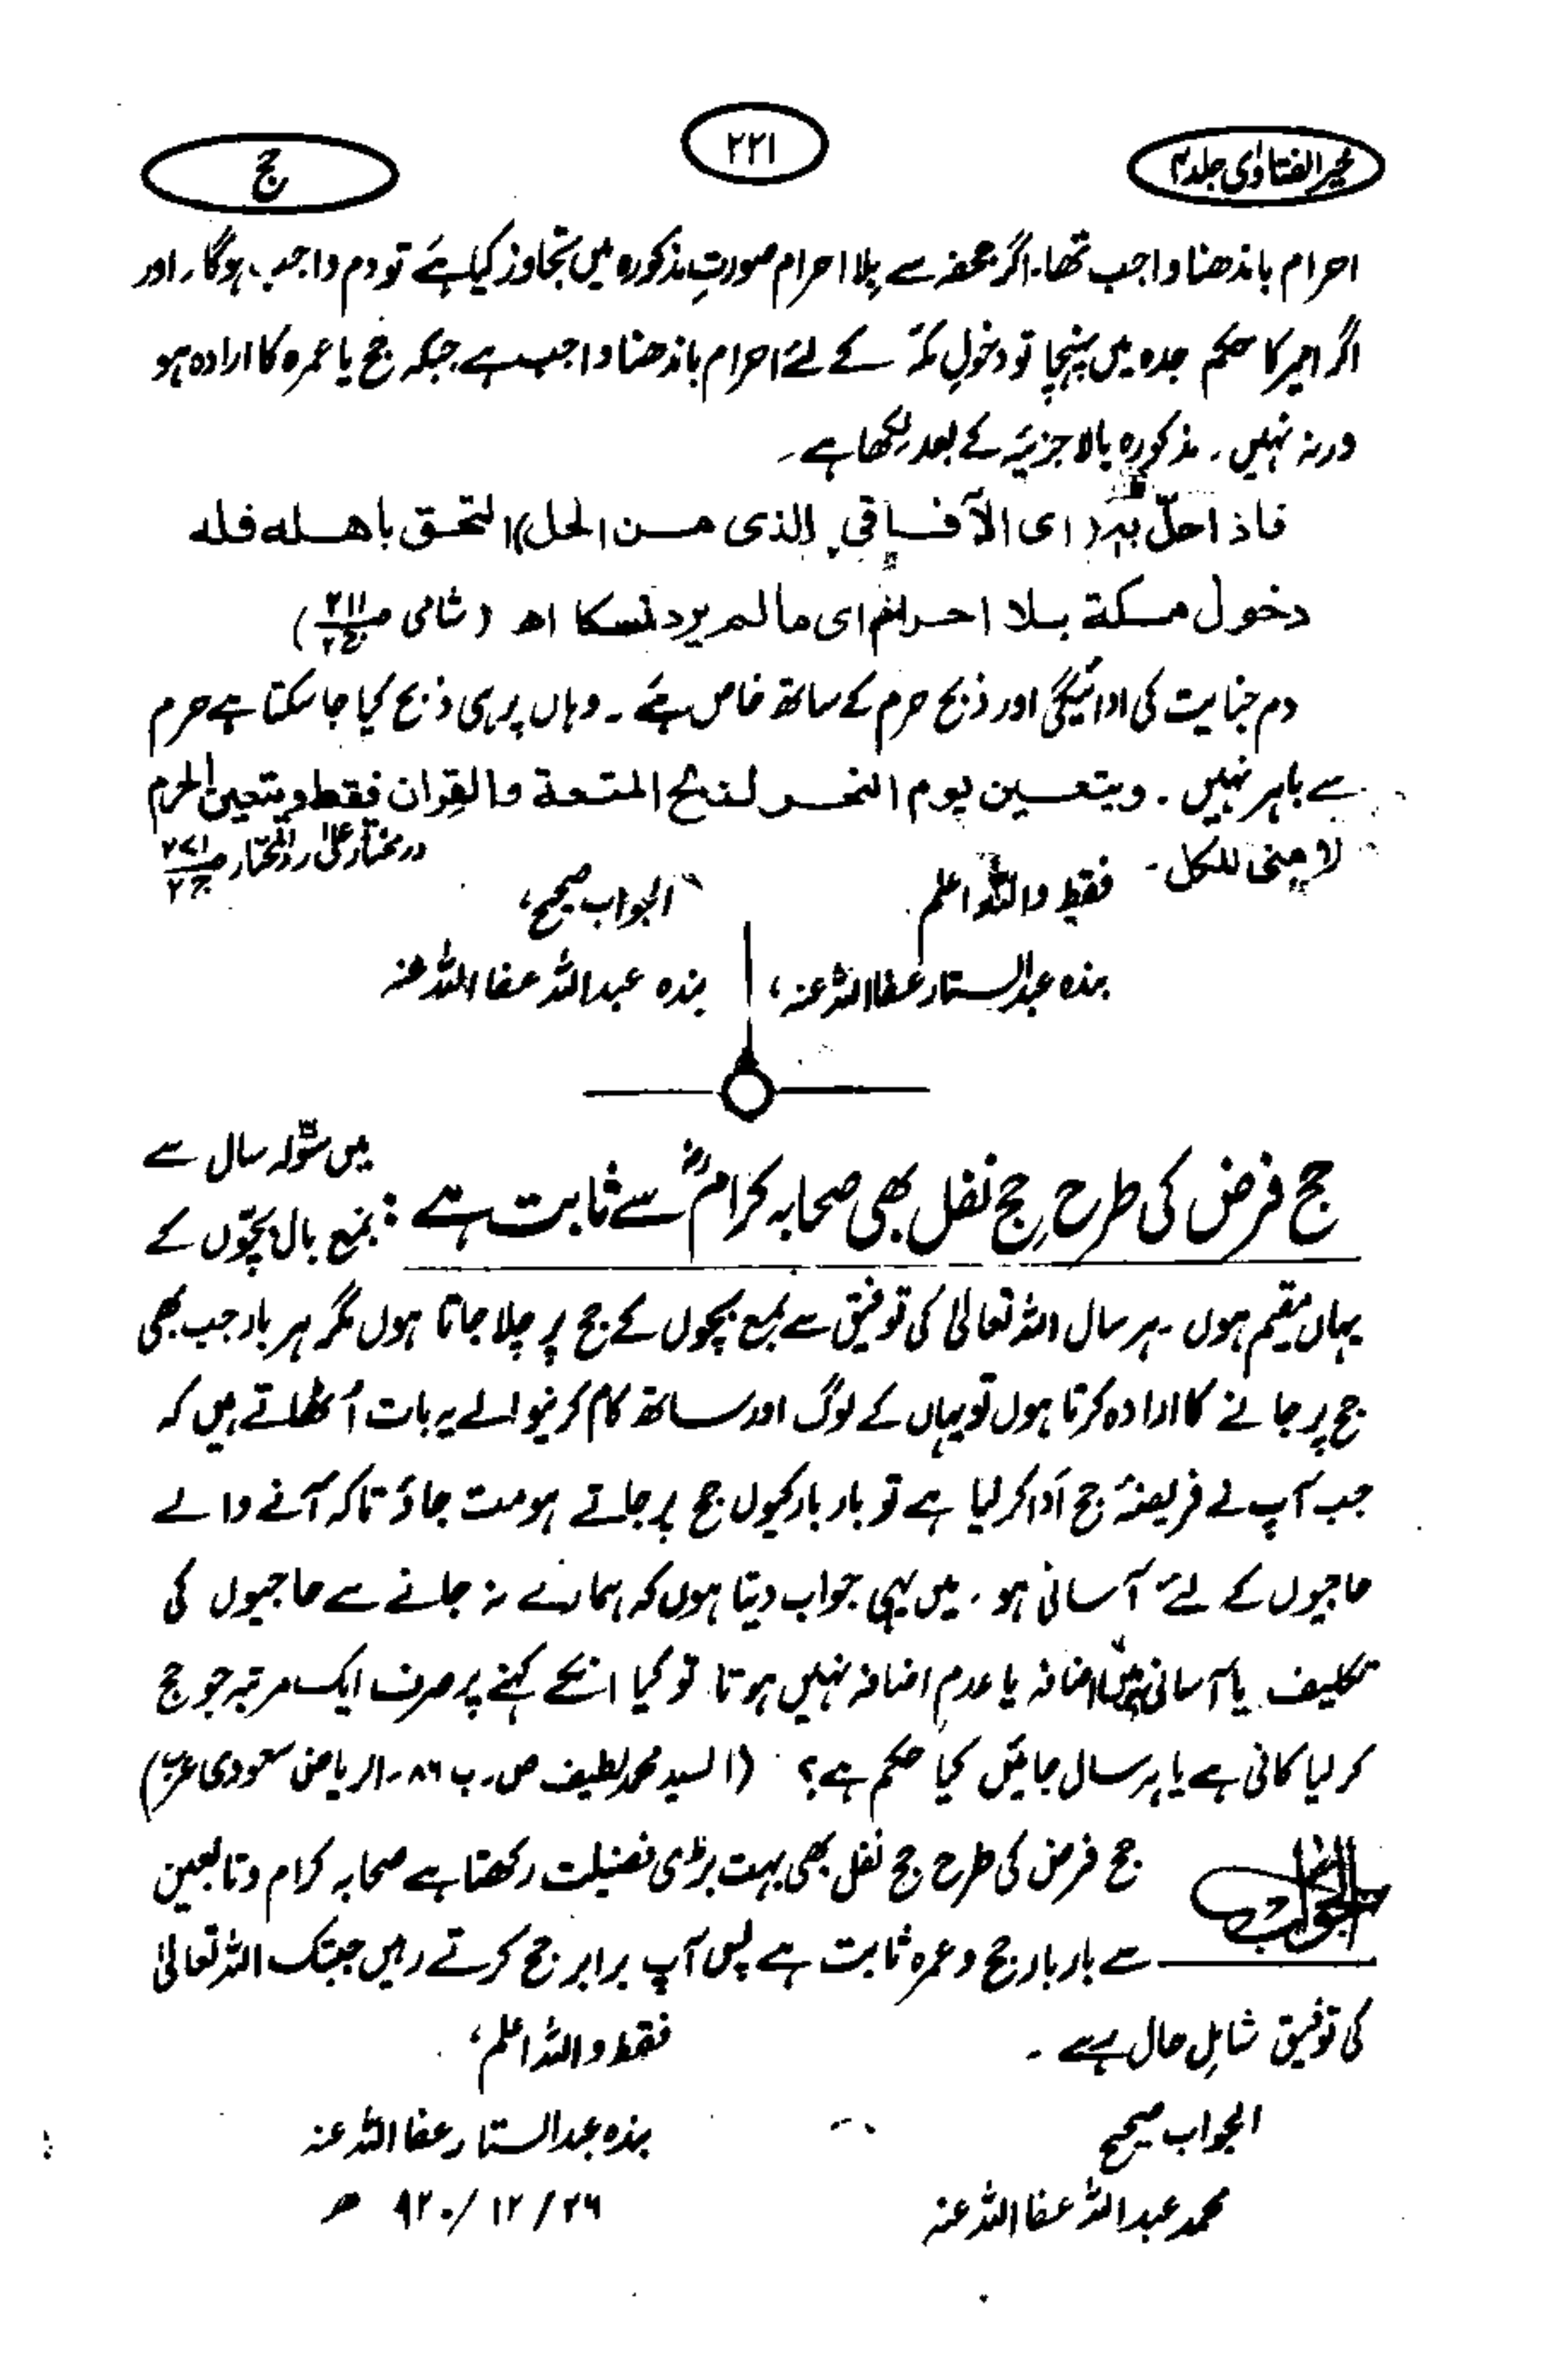 خیر الفتاویٰ جلد ۴
۲۲۱
حج
احرام باندھنا واجب تھا۔ اگر جحفہ سے بلا احرام صورتِ مذکورہ میں تجاوز کیا ہے تو دم واجب ہوگا۔ اور
اگر امیر کا حکم جدہ میں پہنچا تو دخولِ مکہ کے لئے احرام باندھنا واجب ہے جبکہ حج یا عمرہ کا ارادہ ہو
ورنہ نہیں۔ مذکورہ بالا جزئیہ کے بعد لکھا ہے۔
فاذا حلّ بہ (ای الآفاقی الذی من الحل) التحق باهله فله
دخول مكة بلا احرام ای مالم یرد نسکا اھ (شامی
دم جنایت کی ادائیگی اور ذبح حرم کے ساتھ خاص ہے۔ وہاں پر ہی ذبح کیا جا سکتا ہے حرم
سے باہر نہیں۔ ویتعین یوم النحر لذبح المتعة والقِران فقط ویتعین الحرم
لا منی للکل۔
درمختار علی ردالمحتار
فقط واللہ اعلم
الجواب صحیح،
بندہ عبدالستار عفا اللہ عنہ،
بندہ عبداللہ عفا اللہ عنہ
حج فرض کی طرح حج نفل بھی صحابہ کرامؓ سے ثابت ہے :
میں سولہ سال سے
بمع بال بچوں کے
یہاں مقیم ہوں۔ ہر سال اللہ تعالیٰ کی توفیق سے بمع بچوں کے حج پر چلا جاتا ہوں مگر ہر بار جب بھی
حج پر جانے کا ارادہ کرتا ہوں تو یہاں کے لوگ اور ساتھ کام کرنیوالے یہ بات اُٹھاتے ہیں کہ
جب آپ نے فریضۂ حج ادا کر لیا ہے تو بار بار کیوں حج پر جاتے ہو مت جاؤ تاکہ آنے والے
حاجیوں کے لئے آسانی ہو۔ میں یہی جواب دیتا ہوں کہ ہمارے نہ جانے سے حاجیوں کی
تکلیف یا آسانی میں اضافہ یا عدمِ اضافہ نہیں ہوتا تو کیا انکے کہنے پر صرف ایک مرتبہ جو حج
کر لیا کافی ہے یا ہر سال جائیں کیا حکم ہے؟ (السید محمد لطیف ص۔ب ۸۶۔ الریاض سعودی عرب)
الجواب
حج فرض کی طرح حج نفل بھی بہت بڑی فضیلت رکھتا ہے صحابہ کرام و تابعین
سے بار بار حج و عمرہ ثابت ہے پس آپ برابر حج کرتے رہیں جبتک اللہ تعالیٰ
کی توفیق شاملِ حال ہے۔
فقط واللہ اعلم،
الجواب صحیح
بندہ عبدالستار عفا اللہ عنہ
محمد عبداللہ عفا اللہ عنہ
۲۶ / ۱۲ /